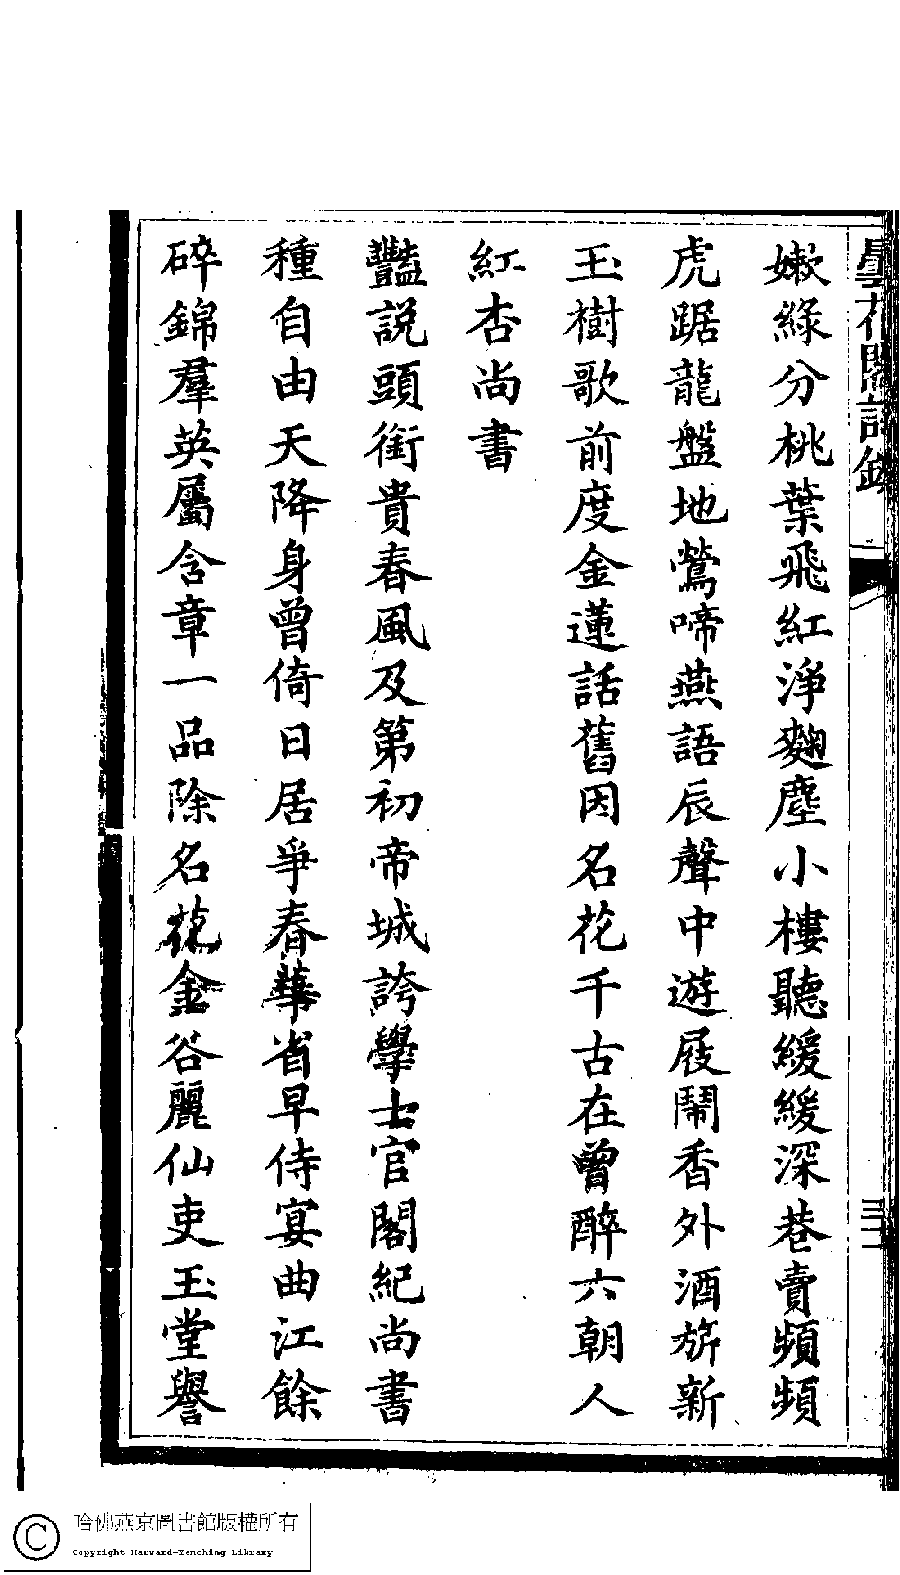 曇花閣詩鈔
三二
嫩綠分桃葉飛紅淨麴塵小樓聽緩緩深巷賣頻頻
虎踞龍盤地鶯啼燕語辰聲中遊屐鬧香外酒旂新
玉樹歌前度金蓮話舊因名花千古在曾醉六朝人
紅杏尚書
豔説頭銜貴春風及第初帝城誇學士官閣紀尚書
種自由天降身曾倚日居爭春華省早侍宴曲江餘
碎錦羣英屬含章一品除名花金谷麗仙吏玉堂譽
哈佛燕京圖書館版權所有
Copyright Harvard-Yenching Library